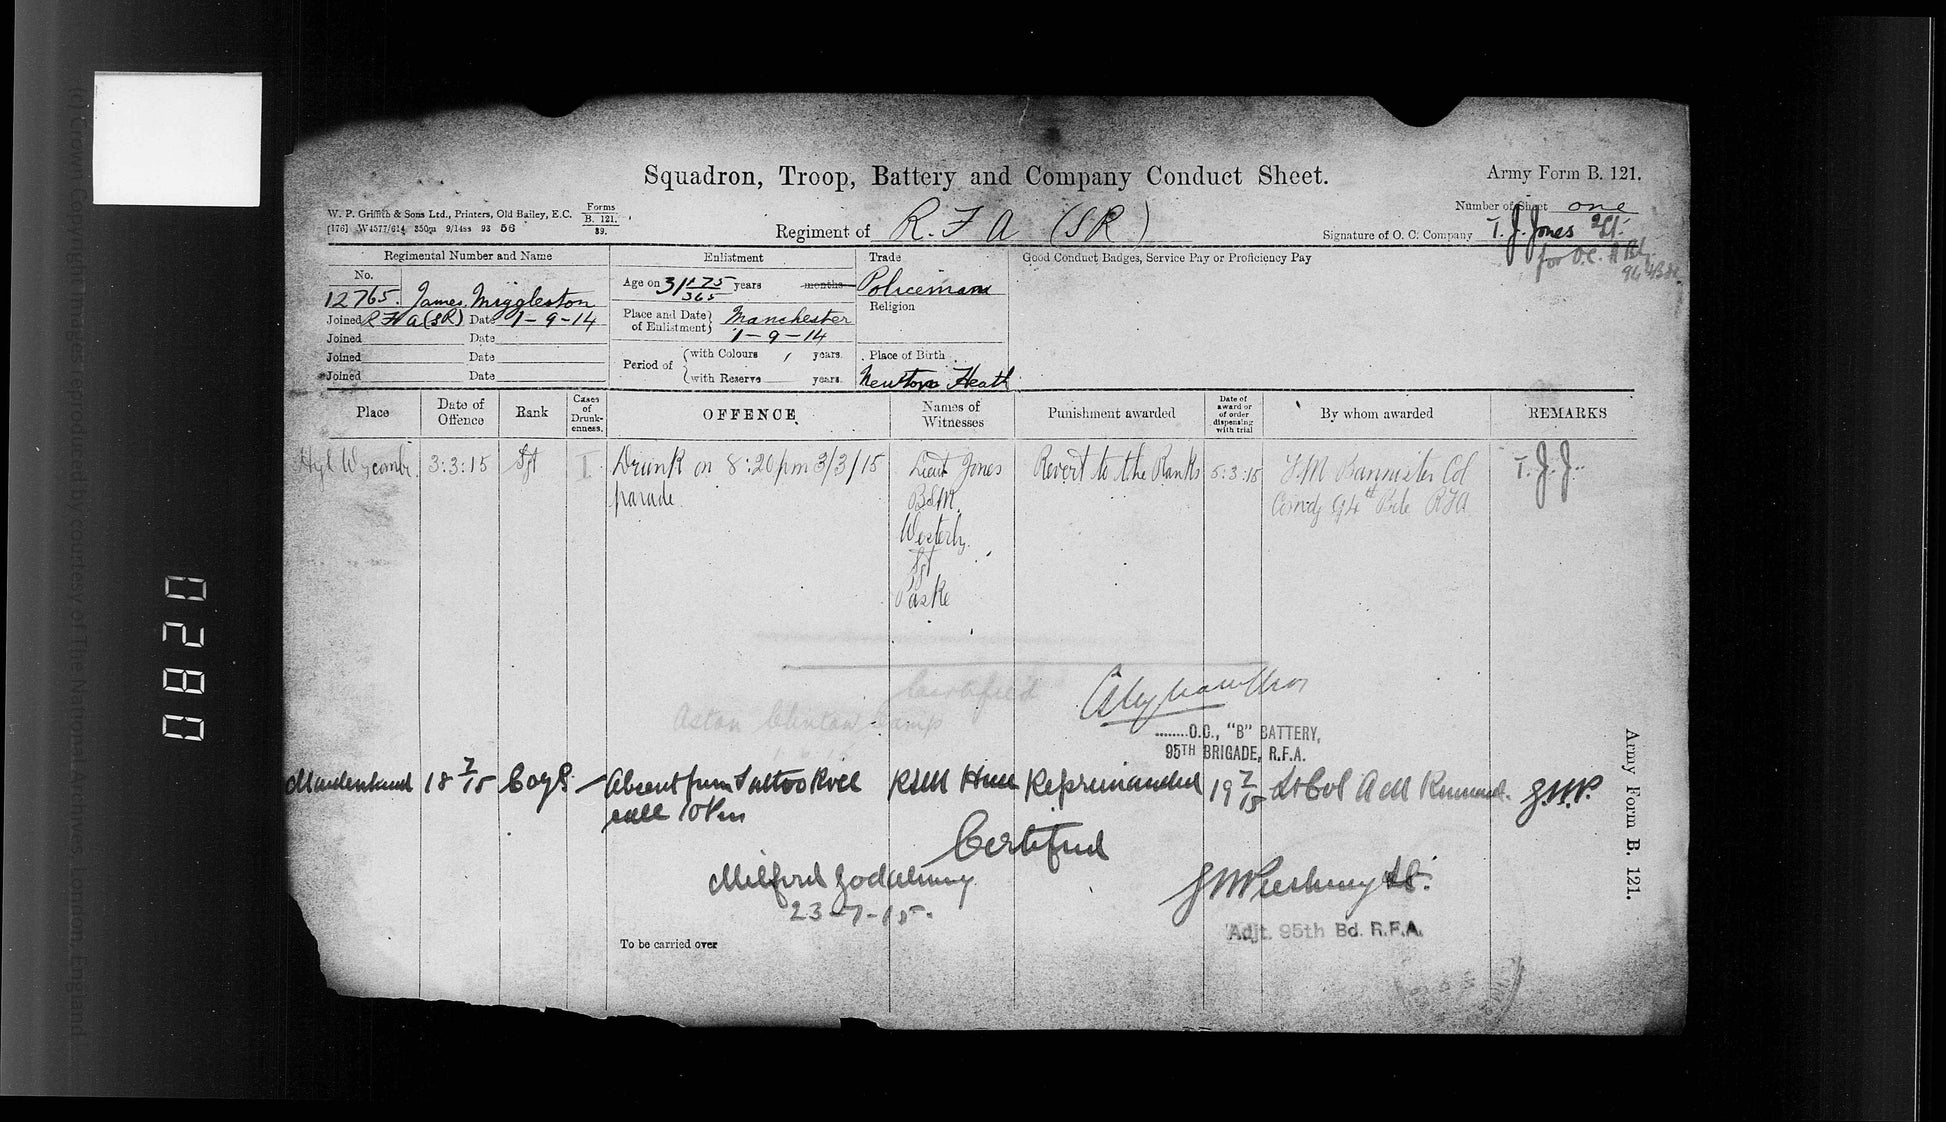 Squadron, Troop, Battery and Company Conduct Sheet.
Army Form B. 121.
W. P. Griffith & Sons Ltd., Printers, Old Bailey, E.C.
Forms
B. 121.
39.
[176] W4577/614 350m 9/14ss 93 56
Number of Sheet one
Regiment of R. F. A (SR)
Signature of O. C. Company T. J. Jones 2Lt.
for O.C. A Bty
96
Regimental Number and Name
Enlistment
Trade
Good Conduct Badges, Service Pay or Proficiency Pay
No.
12765. James Miggleston
Age on 31 175/365 years months
Policeman
Joined RFA (SR) Date 1-9-14
Place and Date of Enlistment Manchester
1-9-14
Religion
Joined Date
Joined Date
Joined Date
Period of with Colours years.
with Reserve years.
Place of Birth
Newton Heath
Place
Date of Offence
Rank
Cases of Drunkenness.
OFFENCE
Names of Witnesses
Punishment awarded
Date of award or of order dispensing with trial
By whom awarded
REMARKS
Wycombe 3:3:15 Sgt I Drunk on 8:20 pm 3/3/15 Lieut Jones Revert to the Ranks 5:3:15 Bannister Col T. J. J.
parade BSM. Comdg 94th Bde RFA
Westerby
Sgt
Paske
Certified
Aston Clinton Camp
O.C., "B" BATTERY,
95TH BRIGADE, R.F.A.
Maidenhead 18 7/15 Absent from Tattoo Roll RSM Reprimanded 19 7/15 Lt Col
call 10 Pm
Certified
Milford Godalming
23-7-15.
Lt.
Adjt. 95th Bd. R.F.A.
To be carried over
Army Form B. 121.
0280
(c) Crown Copyright Images reproduced by courtesy of The National Archives, London, England